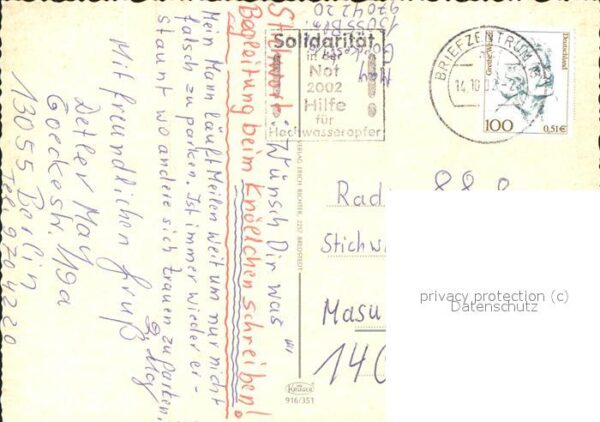 Stichwort: „Wünsch Dir was"
Begleitung beim Knöelchen schreiben!
Mein Mann läuft Meilen weit um nur nicht
falsch zu parken. Ist immer wieder er-
staunt wo andere sich trauen zu parken.
Mit freundlichen Gruß
Detlev May
Goeckestr. 19a
13055 Berlin
Tel 9704220
May
13055 Bln.
970 42 20
Solidarität
in der
Not
2002
Hilfe
für
Hochwasseropfer
BRIEFZENTRUM
14.10.02
Deutschland
100
0,51€
VERLAG ERICH RICHTER, 2257 BREDSTEDT
KRÜGER
916/351
88 8
Rad
Stichw
Masu
140
privacy protection (c)
Datenschutz